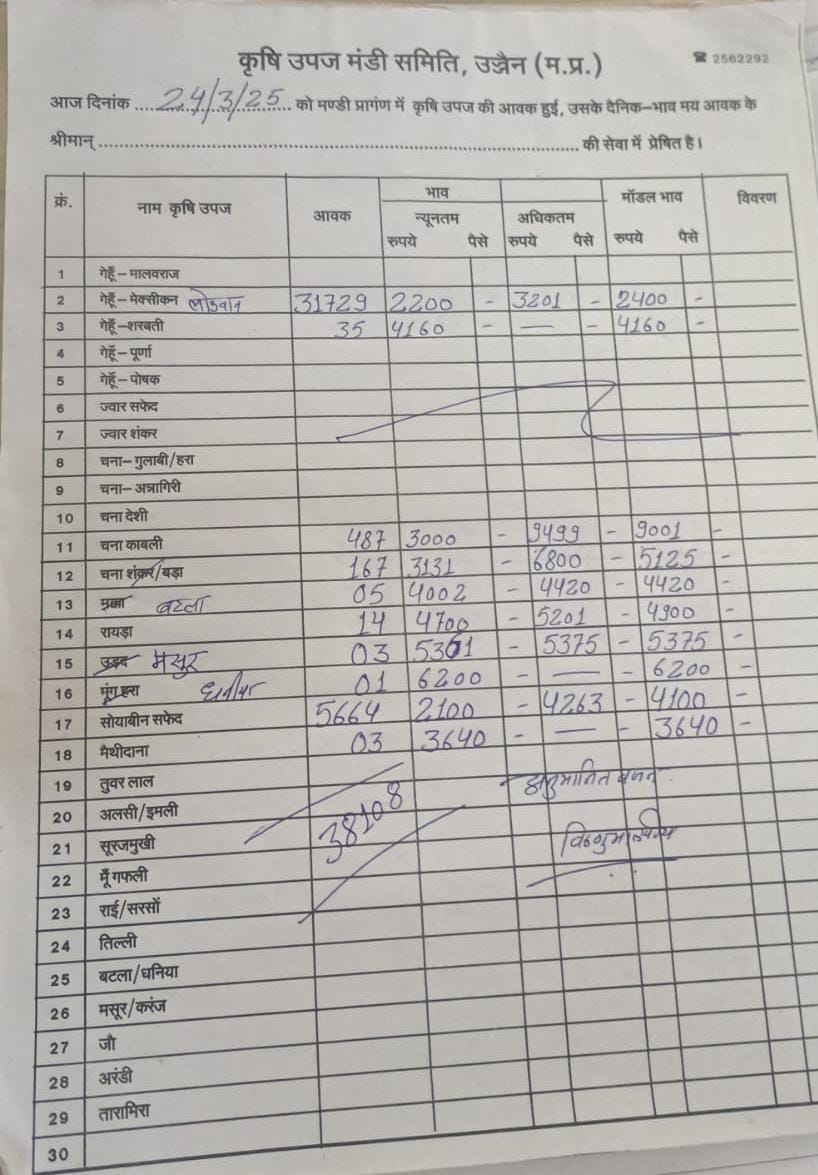 कृषि उपज मंडी समिति, उज्जैन (म.प्र.) ☎ 2562292
आज दिनांक ....24/3/25.... को मण्डी प्रागंण में कृषि उपज की आवक हुई, उसके दैनिक–भाव मय आवक के
श्रीमान् ........................................ की सेवा में प्रेषित है।
क्रं. नाम कृषि उपज आवक भाव मॉडल भाव विवरण
न्यूनतम अधिकतम
रुपये पैसे रुपये पैसे रुपये पैसे
1 गेहूँ – मालवराज
2 गेहूँ – मेक्सीकन लोकवान 31729 2200 - 3201 - 2400 -
3 गेहूँ –शरबती 35 4160 - — - 4160 -
4 गेहूँ – पूर्णा
5 गेहूँ – पोषक
6 ज्वार सफेद
7 ज्वार शंकर
8 चना– गुलाबी/हरा
9 चना– अन्नागिरी
10 चना देशी
11 चना काबली 487 3000 - 9499 - 9001 -
12 चना शंकर/बड़ा 167 3131 - 6800 - 5125 -
13 मक्का बटला 05 4002 - 4420 - 4420 -
14 रायड़ा 14 4700 - 5201 - 4900 -
15 उड़द मसुर 03 5361 - 5375 - 5375 -
16 मूंग हरा धनीया 01 6200 - — - 6200 -
17 सोयाबीन सफेद 5664 2100 - 4263 - 4100 -
18 मैथीदाना 03 3640 - — - 3640 -
19 तुवर लाल
20 अलसी/इमली
21 सूरजमुखी
22 मूँगफली
23 राई/सरसों
24 तिल्ली
25 बटला/धनिया
26 मसूर/करंज
27 जौ
28 अरंडी
29 तारामिरा
30
38108
अनुमानित वजन